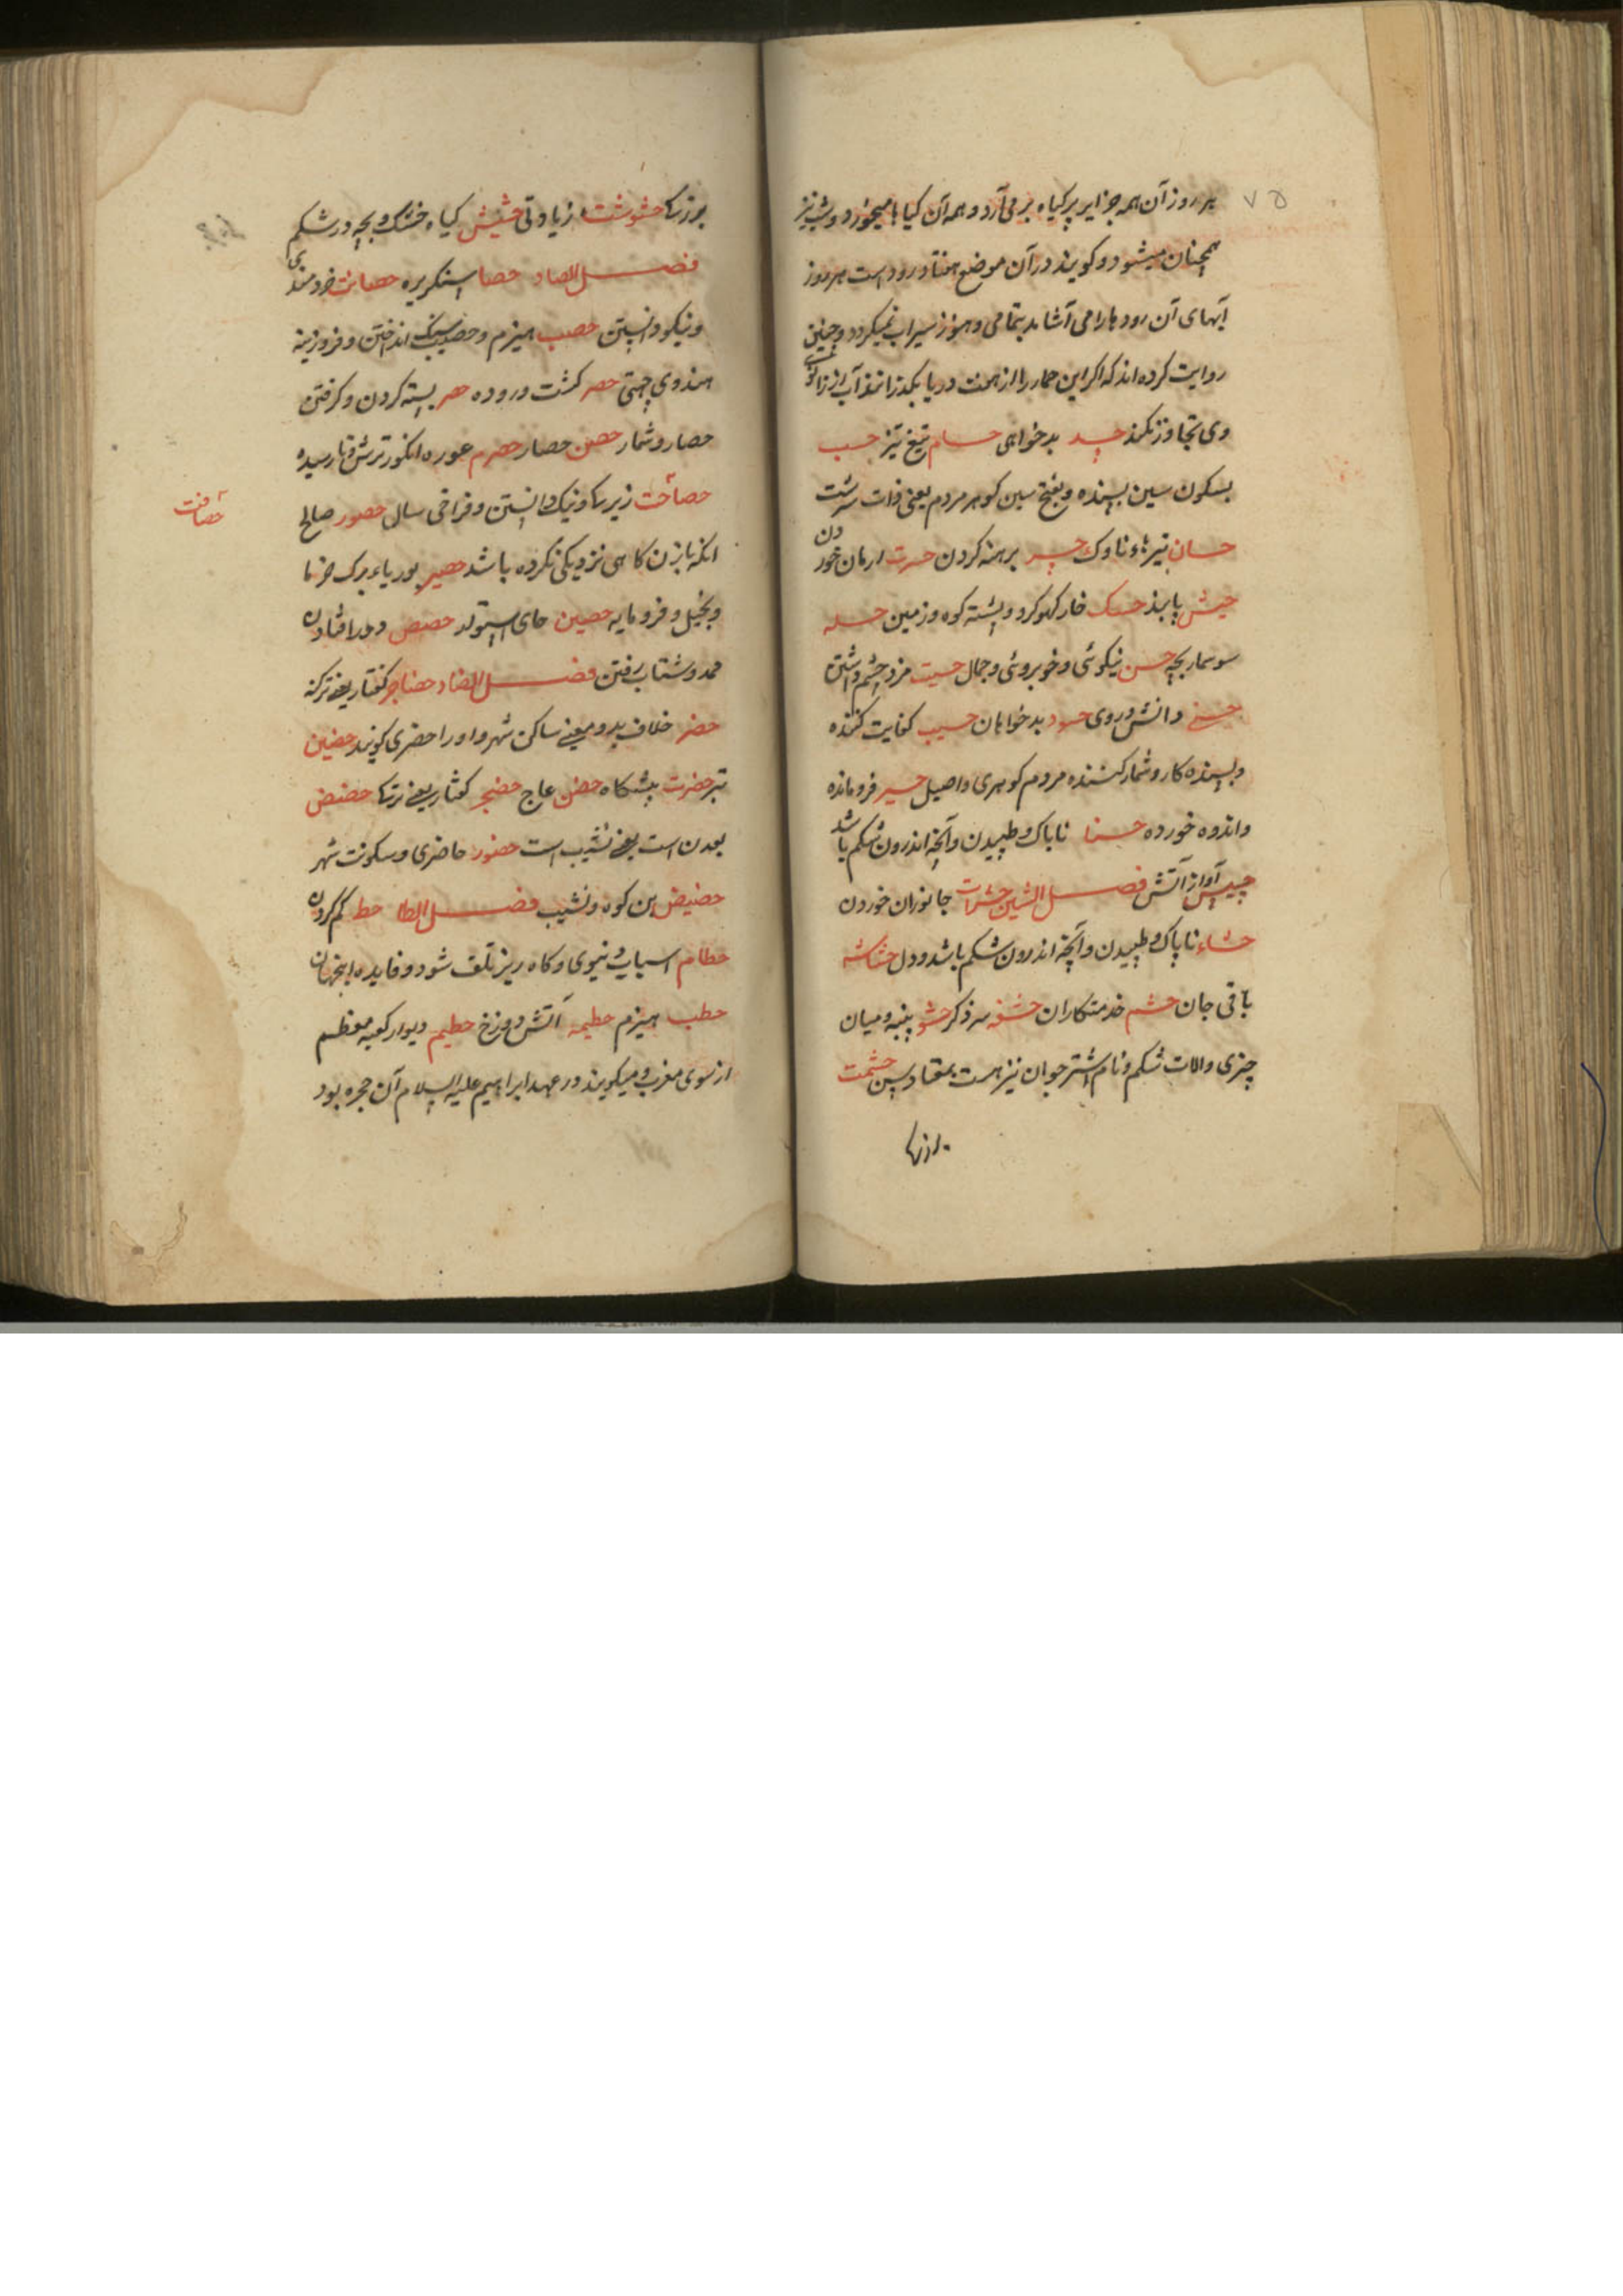 ۷۵
هر روز آن همه جزایر پر گیاه بر می آرد و همه آن گیاها میخورد و شب نیز
همچنان میشود و کویند در آن موضع هفتاد رود است هر روز
آبهای آن رود ها را می آشامد بتمامی و هنوز سیراب نمیکردد و چنین
روایت کرده اند که اکر این حمار را از هفت دریا بکذرانند آب از زانوی
وی تجاوز نکند حسد بدخواهی حسام تیغ تیز حسب
بسکون سین بسنده و بفتح سین کوهر مردم یعنی ذات سرشت
حسان تیرهء ناوک حسر برهنه کردن حسرت ارمان خوردن
حسک خار کهوکرو و پشته کوه و زمین حسله
سوسمار بچه حسن نیکوئی و خوبروئی و جمال حسبت مزد چشم داشتن
دانش و روی حسود بدخواهان حسیب کفایت کننده
و بسنده کار و شمار کننده مردم کوهری و اصیل حسیر فرومانده
و اندوه خورده حسا ناپاک و طپیدن و آنچه اندرون شکم باشد
حسیس آواز آتش فصل الشین حشرات جانوران خوردن
حشاء ناپاک و طپیدن و آنچه اندرون شکم باشد و دل حشاشه
باقی جان حشم خدمتکاران حشفه سر ذکر حشو پنبه و میان
چیزی و الات شکم و نام اشتر جوان نیز هست حشمت
بزرکی حشوشت زیادتی حشیش کیاه خشک و بچه در شکم
فصل الصاد حصا سنکریزه حصانت خردمندی
و نیکو دانستن حصب هیزم و سنک انداختن و فروزینه
هندوی حصد کشت دروده حصر بسته کردن و کرفتن
حصار و شمار حصن حصار حصرم غوره انکور ترش و نارسیده
حصافت
حصآفت زیرکی و نیک دانستن و فراخی سال حصور صالح
انکه با زن کاهی نزدیکی نکرده باشد حصیر بوریاء برک خرما
و بخیل و فرومایه حصین جای استوار حصص
و شتاب رفتن فصل الضاد حضاجر کفتار یعنی
حضر خلاف بدو یعنی ساکن شهر و او را حضری کویند حضین
حضرت پیشکاه حضن عاج حضجر کفتار یعنی حضیض
است یعنی نشیب است حضور حاضری و سکونت شهر
حضیض بن کوه و نشیب فصل الطا حط کم کردن
حطام اسباب دنیوی و کاه ریز تلف شود و فایده اینجهان
حطب هیزم حطیمه آتش دوزخ حطیم دیوار کعبه معظم
از سوی مغرب و میکویند در عهد ابراهیم علیه السلام آن حجره بود